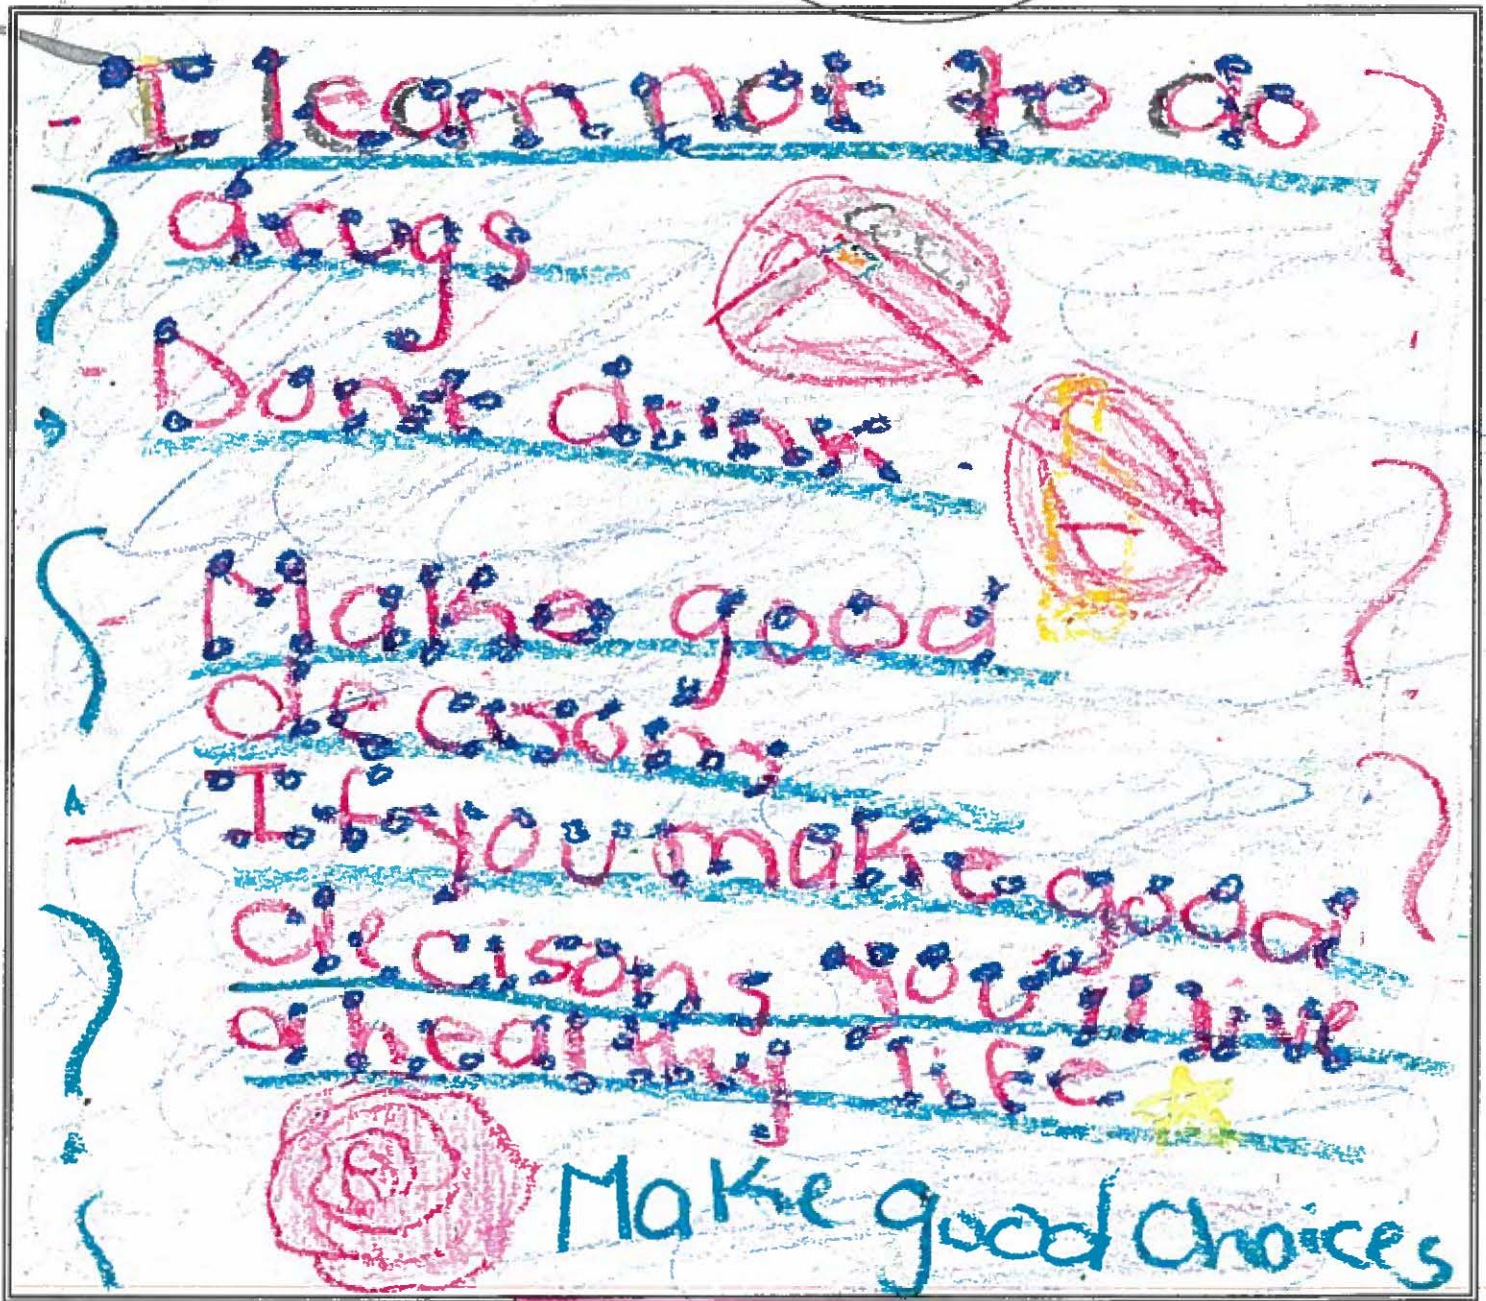 - I learn not to do
drugs
- Dont drink.
- Make good
decisons
- If you make good
decisons you'll live
a healthy life
Make good choices